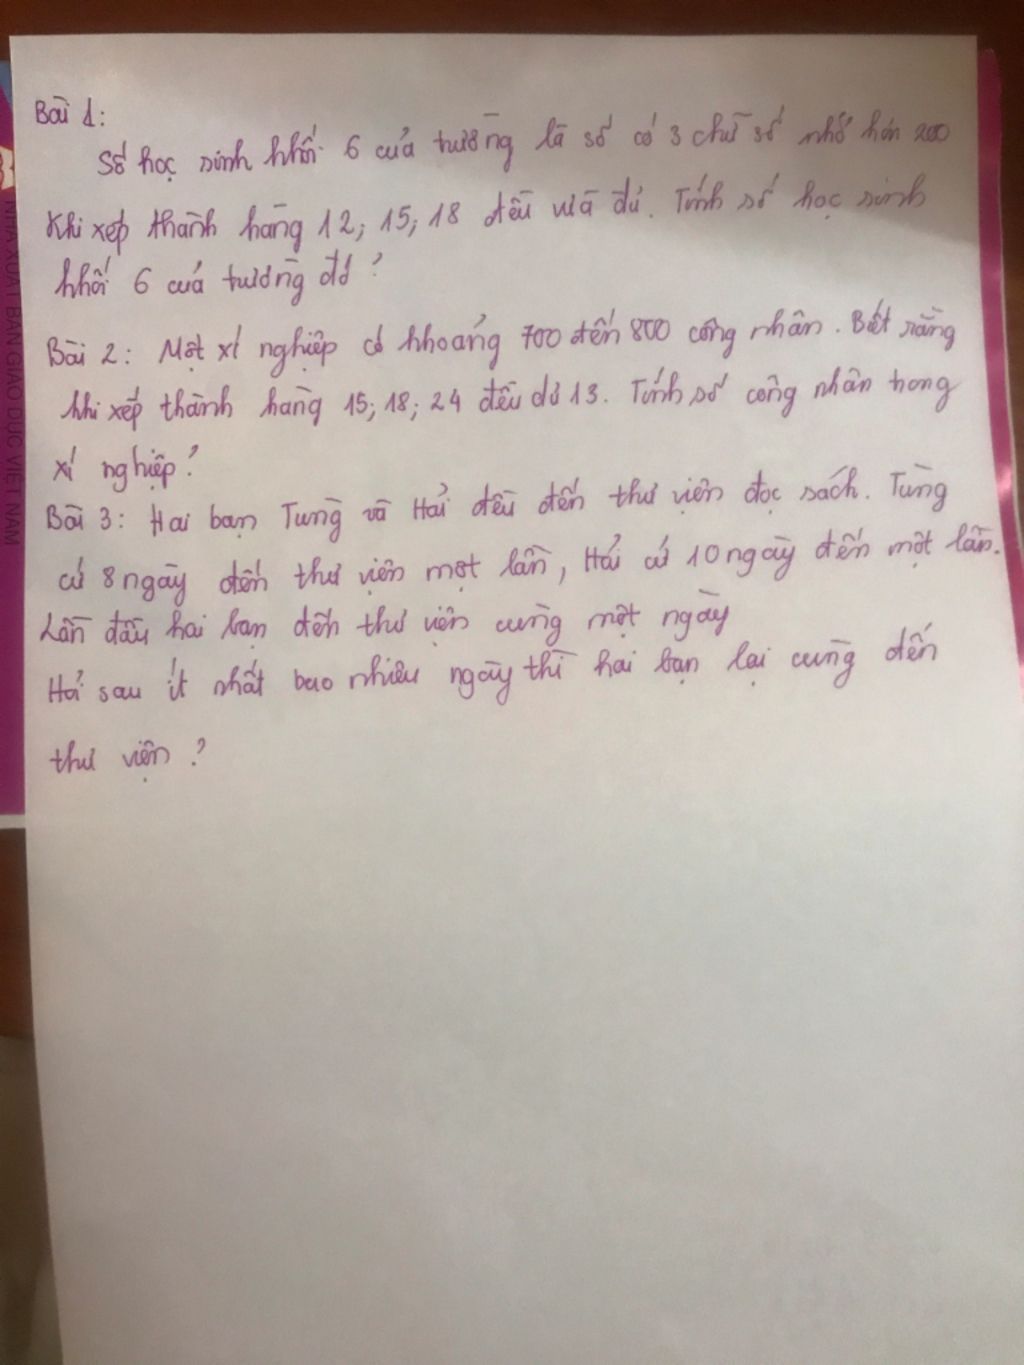 Bài 1:
Số học sinh khối 6 của trường là số có 3 chữ số nhỏ hơn 200
Khi xếp thành hàng 12; 15; 18 đều vừa đủ. Tính số học sinh
khối 6 của trường đó?
Bài 2: Một xí nghiệp có khoảng 700 đến 800 công nhân. Biết rằng
khi xếp thành hàng 15; 18; 24 đều dư 13. Tính số công nhân trong
xí nghiệp?
Bài 3: Hai bạn Tùng và Hải đều đến thư viện đọc sách. Tùng
cứ 8 ngày đến thư viện một lần, Hải cứ 10 ngày đến một lần.
Lần đầu hai bạn đến thư viện cùng một ngày
Hỏi sau ít nhất bao nhiêu ngày thì hai bạn lại cùng đến
thư viện?
NHÀ XUẤT BẢN GIÁO DỤC VIỆT NAM